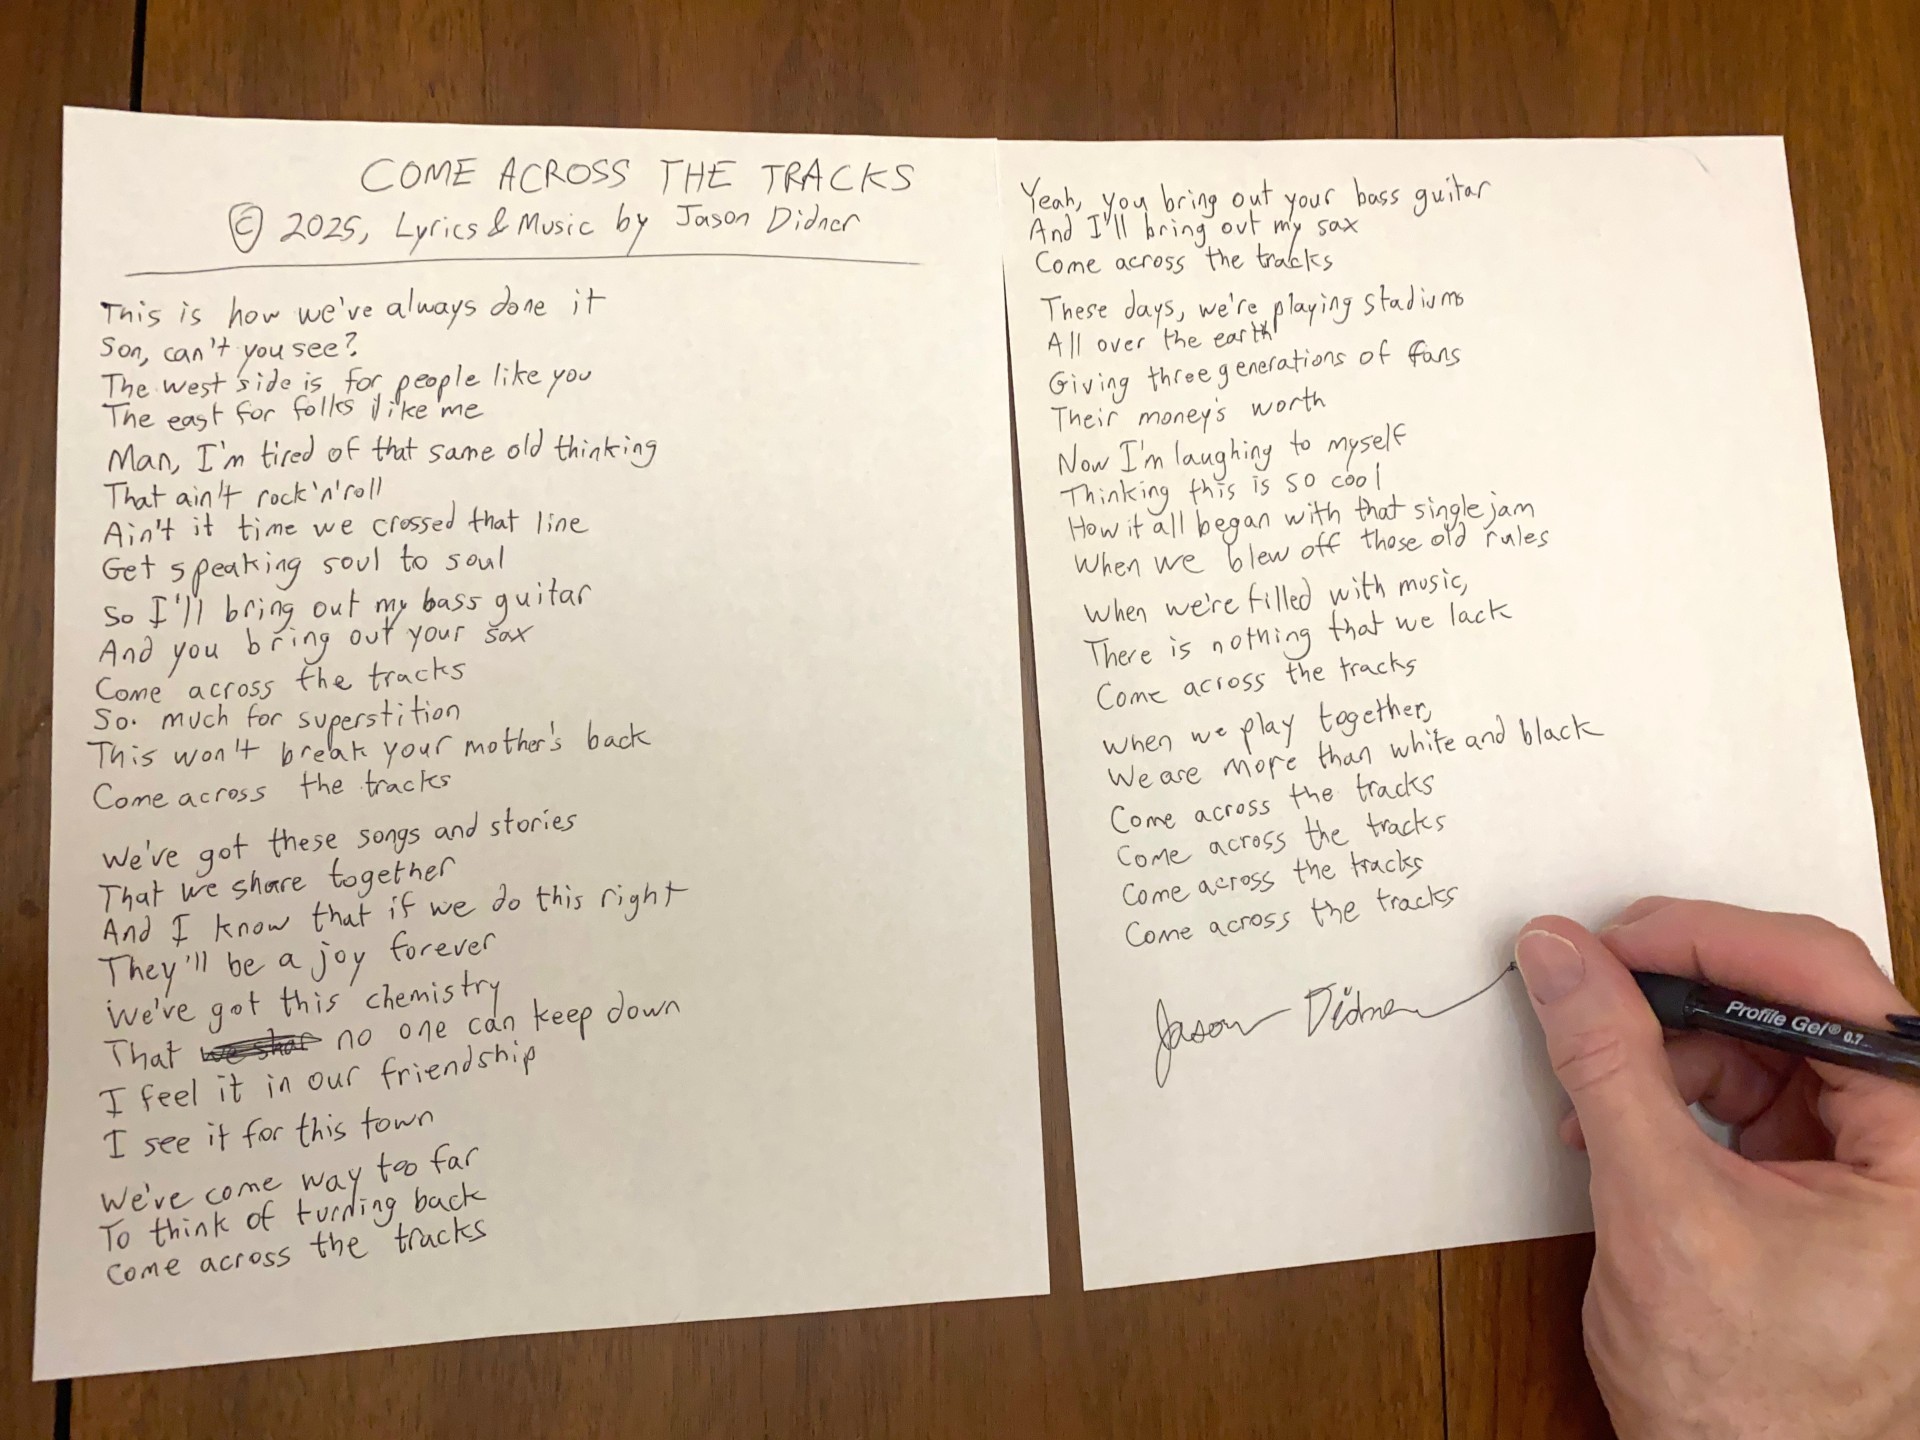 COME ACROSS THE TRACKS
© 2025, Lyrics & Music by Jason Didner
This is how we've always done it
Son, can't you see?
The west side is for people like you
The east for folks like me
Man, I'm tired of that same old thinking
That ain't rock 'n' roll
Ain't it time we crossed that line
Get speaking soul to soul
So I'll bring out my bass guitar
And you bring out your sax
Come across the tracks
So. much for superstition
This won't break your mother's back
Come across the tracks
We've got these songs and stories
That we share together
And I know that if we do this right
They'll be a joy forever
We've got this chemistry
That we shar no one can keep down
I feel it in our friendship
I see it for this town
We've come way too far
To think of turning back
Come across the tracks
Yeah, you bring out your bass guitar
And I'll bring out my sax
Come across the tracks
These days, we're playing stadiums
All over the earth
Giving three generations of fans
Their money's worth
Now I'm laughing to myself
Thinking this is so cool
How it all began with that single jam
When we blew off those old rules
When we're filled with music,
There is nothing that we lack
Come across the tracks
When we play together,
We are more than white and black
Come across the tracks
Come across the tracks
Come across the tracks
Come across the tracks
Jason Didner
Profile Gel® 0.7